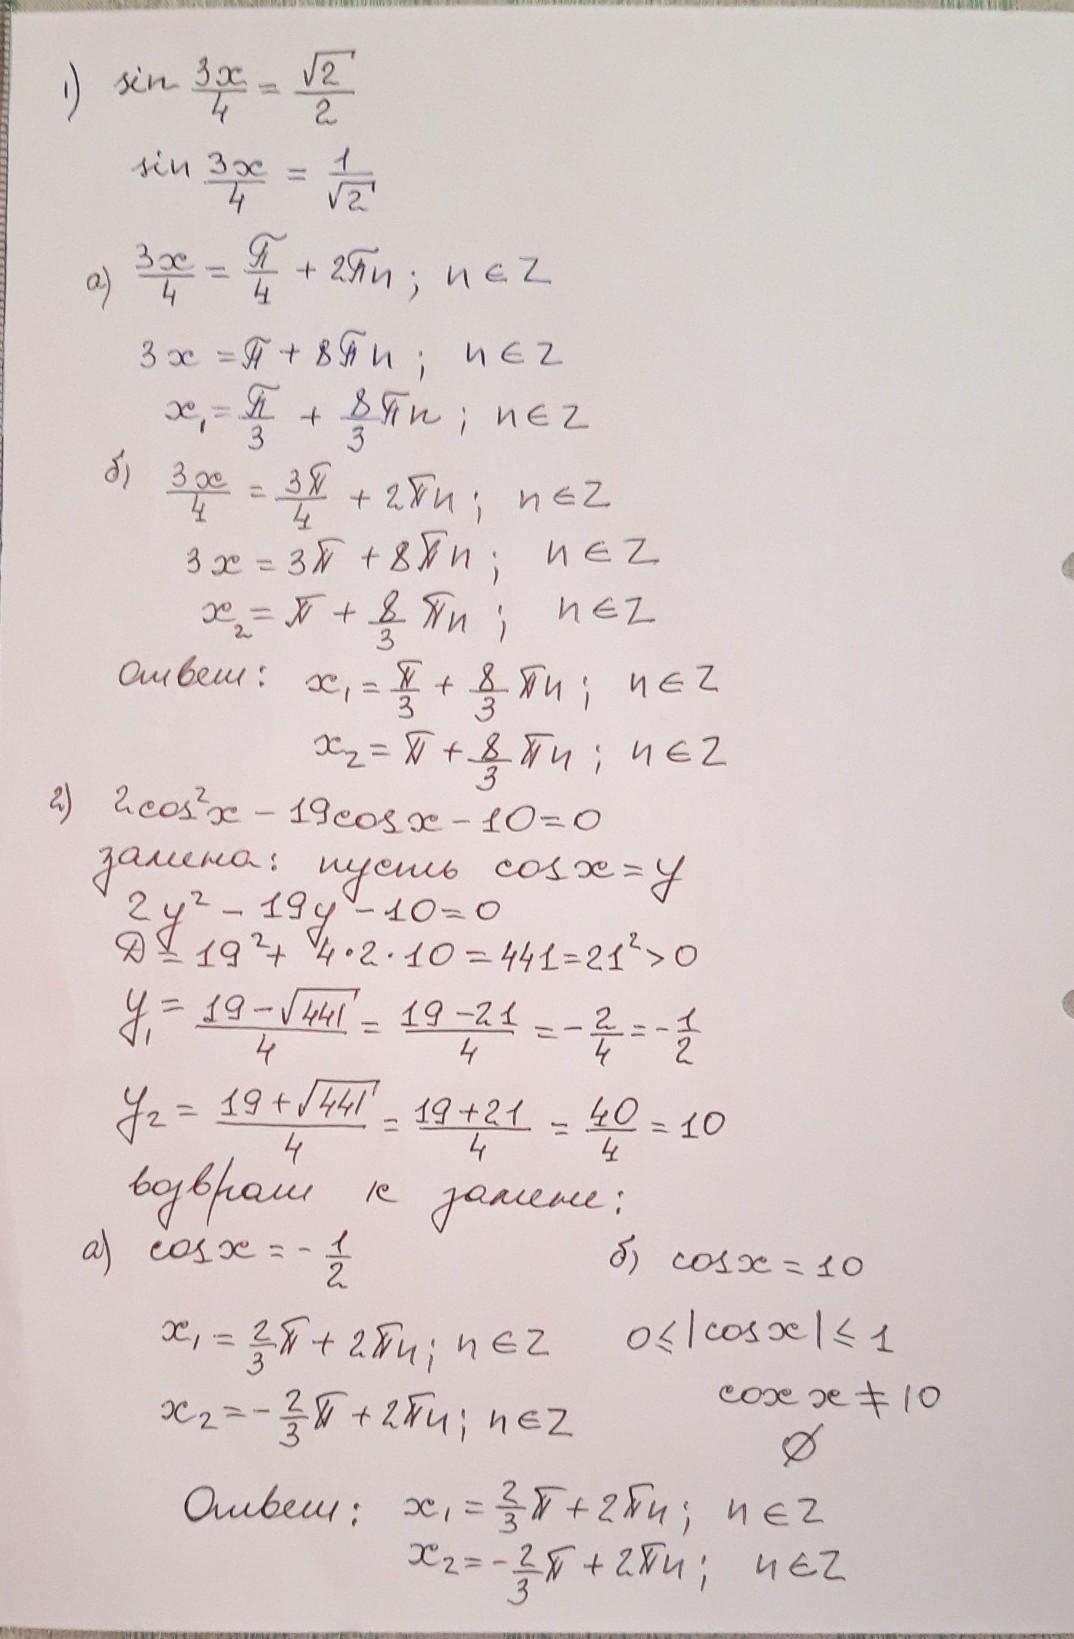 1) sin 3x/4 = √2/2
sin 3x/4 = 1/√2
а) 3x/4 = π/4 + 2πn; n ∈ Z
3x = π + 8πn; n ∈ Z
x₁ = π/3 + 8/3 πn; n ∈ Z
б) 3x/4 = 3π/4 + 2πn; n ∈ Z
3x = 3π + 8πn; n ∈ Z
x₂ = π + 8/3 πn; n ∈ Z
Ответ: x₁ = π/3 + 8/3 πn; n ∈ Z
x₂ = π + 8/3 πn; n ∈ Z
2) 2cos²x - 19cosx - 10 = 0
замена: пусть cosx = y
2y² - 19y - 10 = 0
D = 19² + 4·2·10 = 441 = 21² > 0
y₁ = (19 - √441)/4 = (19 - 21)/4 = -2/4 = -1/2
y₂ = (19 + √441)/4 = (19 + 21)/4 = 40/4 = 10
возврат к замене:
а) cosx = -1/2 б) cosx = 10
x₁ = 2/3 π + 2πn; n ∈ Z 0 ≤ |cosx| ≤ 1
x₂ = -2/3 π + 2πn; n ∈ Z cox x ≠ 10
∅
Ответ: x₁ = 2/3 π + 2πn; n ∈ Z
x₂ = -2/3 π + 2πn; n ∈ Z